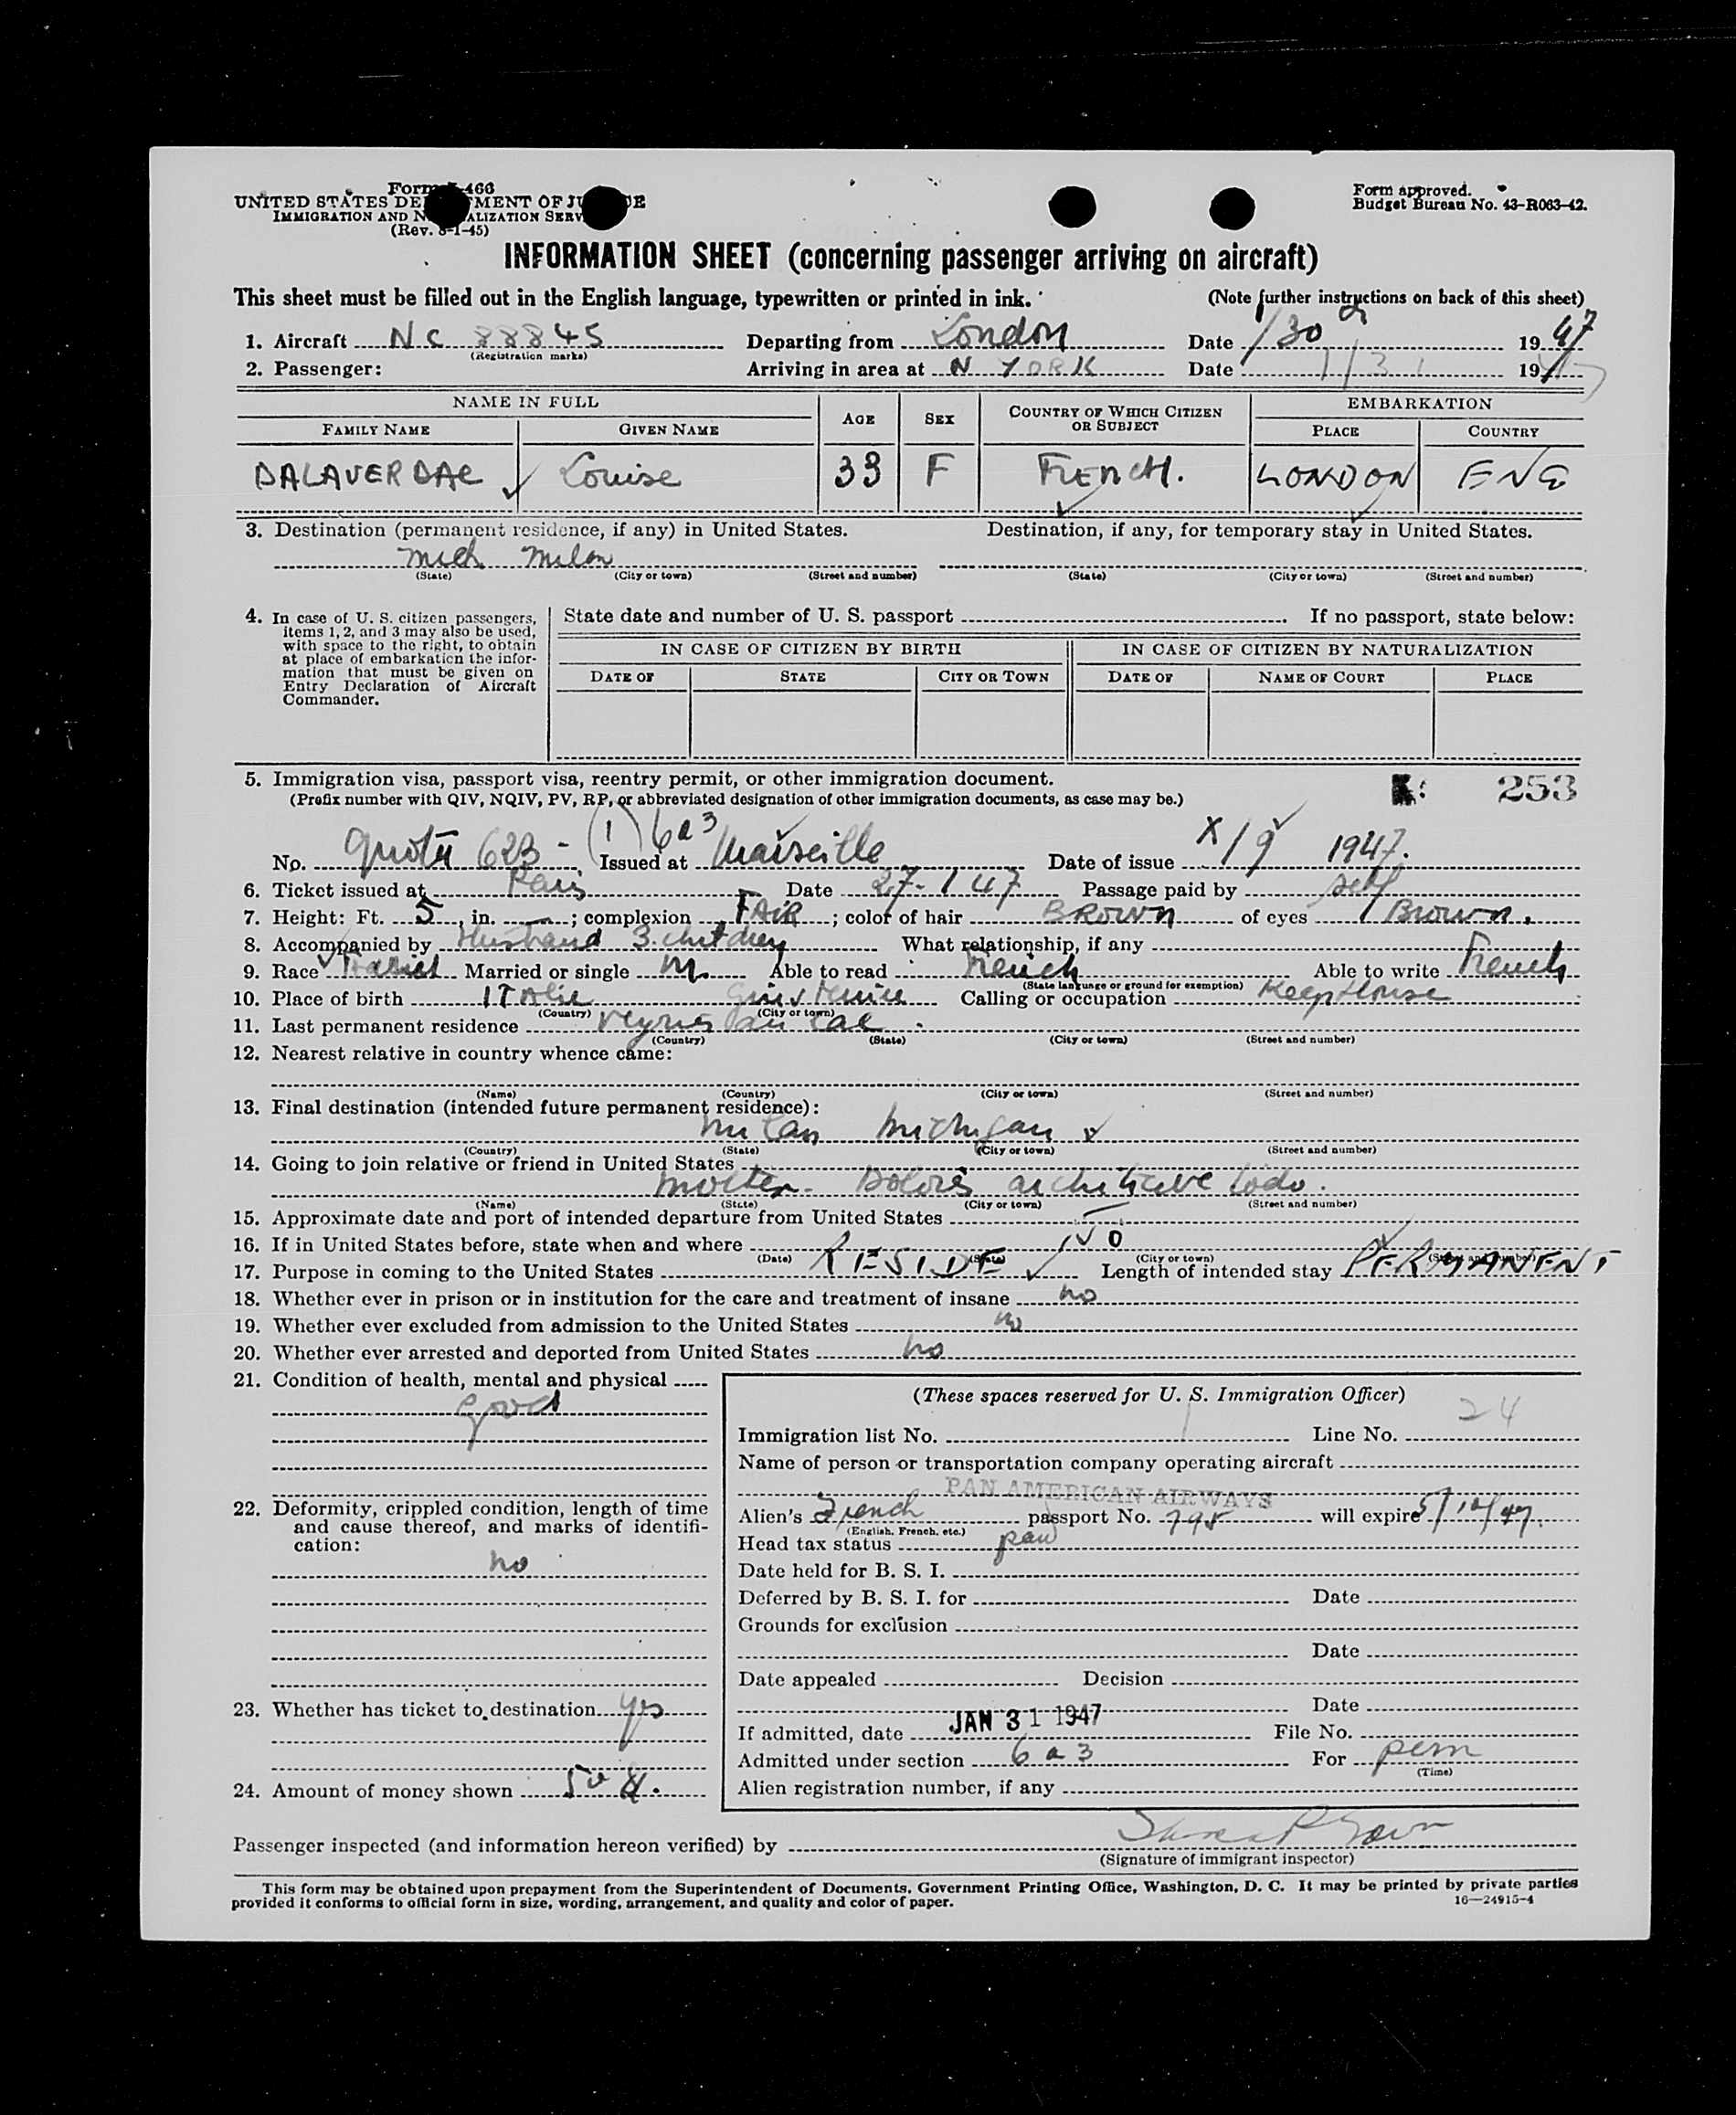 Form I-466
UNITED STATES DEPARTMENT OF JUSTICE
IMMIGRATION AND NATURALIZATION SERVICE
(Rev. 8-1-45)
Form approved.
Budget Bureau No. 43-R063-42.
INFORMATION SHEET (concerning passenger arriving on aircraft)
This sheet must be filled out in the English language, typewritten or printed in ink. (Note further instructions on back of this sheet)
1. Aircraft NC 88845 Departing from London Date 1/30 1947
(Registration marks)
2. Passenger: Arriving in area at N YORK Date 1/31 1947
NAME IN FULL AGE SEX COUNTRY OF WHICH CITIZEN OR SUBJECT EMBARKATION
FAMILY NAME GIVEN NAME PLACE COUNTRY
DALAVERDAC Louise 33 F FRENCH. LONDON ENG
3. Destination (permanent residence, if any) in United States. Destination, if any, for temporary stay in United States.
Mich Milan
(State) (City or town) (Street and number) (State) (City or town) (Street and number)
4. In case of U. S. citizen passengers, items 1, 2, and 3 may also be used, with space to the right, to obtain at place of embarkation the information that must be given on Entry Declaration of Aircraft Commander.
State date and number of U. S. passport If no passport, state below:
IN CASE OF CITIZEN BY BIRTH IN CASE OF CITIZEN BY NATURALIZATION
DATE OF STATE CITY OR TOWN DATE OF NAME OF COURT PLACE
5. Immigration visa, passport visa, reentry permit, or other immigration document. 253
(Prefix number with QIV, NQIV, PV, RP, or abbreviated designation of other immigration documents, as case may be.)
No. Quota 623 - (1) 6a3 Issued at Marseille Date of issue X/9 1947.
6. Ticket issued at Paris Date 27-1 47 Passage paid by self
7. Height: Ft. 5, in. —; complexion FAIR; color of hair BROWN of eyes Brown.
8. Accompanied by Husband 3 children What relationship, if any
9. Race Married or single M. Able to read French Able to write French
(State language or ground for exemption)
10. Place of birth ITAlie Calling or occupation Keep House
(Country) (City or town)
11. Last permanent residence
(Country) (State) (City or town) (Street and number)
12. Nearest relative in country whence came:
(Name) (Country) (City or town) (Street and number)
13. Final destination (intended future permanent residence):
Milan Michigan
(Country) (State) (City or town) (Street and number)
14. Going to join relative or friend in United States
(Name) (State) (City or town) (Street and number)
15. Approximate date and port of intended departure from United States —
16. If in United States before, state when and where NO
(Date) (State) (City or town) (Street and number)
17. Purpose in coming to the United States RESIDE Length of intended stay PERMANENT
18. Whether ever in prison or in institution for the care and treatment of insane no
19. Whether ever excluded from admission to the United States no
20. Whether ever arrested and deported from United States no
21. Condition of health, mental and physical
good
22. Deformity, crippled condition, length of time and cause thereof, and marks of identification:
no
23. Whether has ticket to destination yes
24. Amount of money shown
(These spaces reserved for U. S. Immigration Officer)
Immigration list No. 1 Line No. 24
Name of person or transportation company operating aircraft
PAN AMERICAN AIRWAYS
Alien's French passport No. 795 will expire 5/12/47.
(English, French, etc.)
Head tax status paid
Date held for B. S. I.
Deferred by B. S. I. for Date
Grounds for exclusion
Date
Date appealed Decision
Date
If admitted, date JAN 31 1947 File No.
Admitted under section 6 a 3 For perm
(Time)
Alien registration number, if any
Passenger inspected (and information hereon verified) by
(Signature of immigrant inspector)
This form may be obtained upon prepayment from the Superintendent of Documents, Government Printing Office, Washington, D. C. It may be printed by private parties
provided it conforms to official form in size, wording, arrangement, and quality and color of paper. 16—24915-4